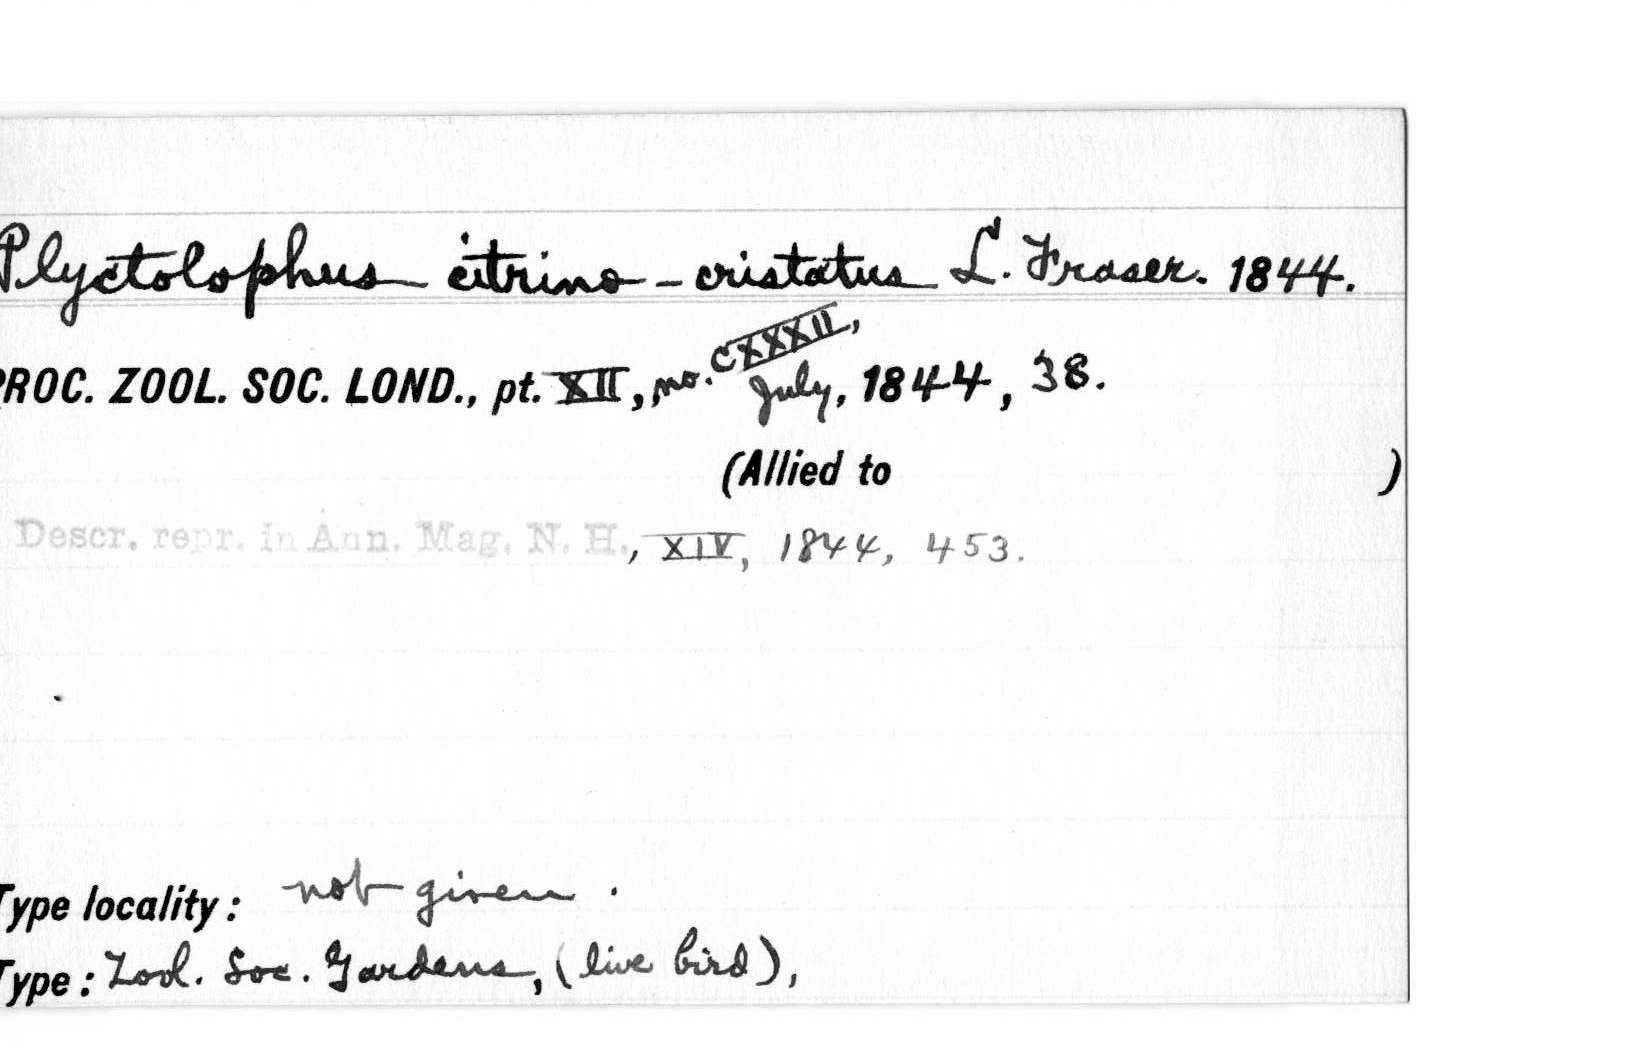 Plyctolophus citrino-cristatus L. Fraser. 1844.
PROC. ZOOL. SOC. LOND., pt. XII, no. CXXXII, July, 1844, 38.
(Allied to )
Descr. repr. in Ann. Mag. N. H., XIV, 1844, 453.
Type locality: not given.
Type: Zool. Soc. Gardens, (live bird),